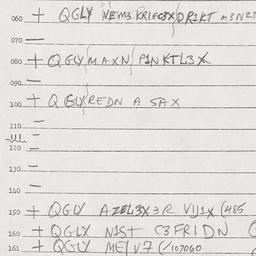 060 + QGLY NEM3 KRIEG3X DR1KT M3NZ3
070 —
080 + QGLY MAXN P1NKTL3X
090 —
100 + QGLY REDN A SAX
110 —
120
130 —
140 —
150 + QGLY AZEL3X3R V1J1X (485
160 + QGLY N1ST O3FR1DN (
161 + QGLY ME|V7 (/107060